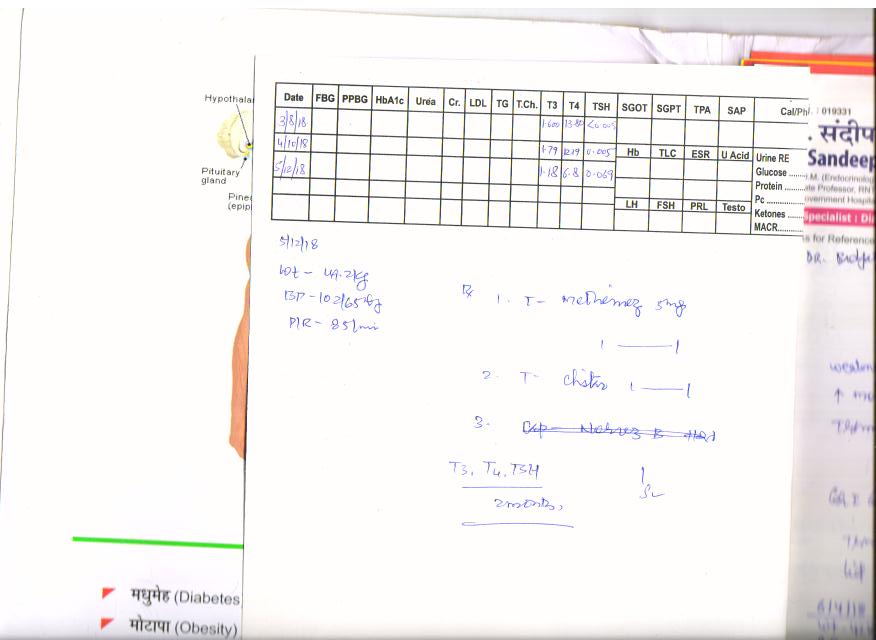 Hypothala
Pituitary
gland
Pine
(epip
Date FBG PPBG HbA1c Urea Cr. LDL TG T.Ch. T3 T4 TSH SGOT SGPT TPA SAP Cal/Ph
3/8/18 1.600 13.80 <0.005
4/10/18 1.79 12.19 0.005 Hb TLC ESR U Acid Urine RE
5/12/18 1.18 6.8 0.069 Glucose
Protein
Pc
LH FSH PRL Testo Ketones
MACR
: 019331
. संदीप
Sandeep
.M. (Endocrinolog
te Professor, RNT
overnment Hospita
Specialist : Dia
s for Reference
DR.
5/12/18
Wt - 49.2kg
BP - 102/65
P/R - 85/min
Rx 1. T- Methimez 5mg
1 — 1
2. T- 1 — 1
3. Cap
T3, T4, TSH
2 months,
6/4/18
मधुमेह (Diabetes
मोटापा (Obesity)